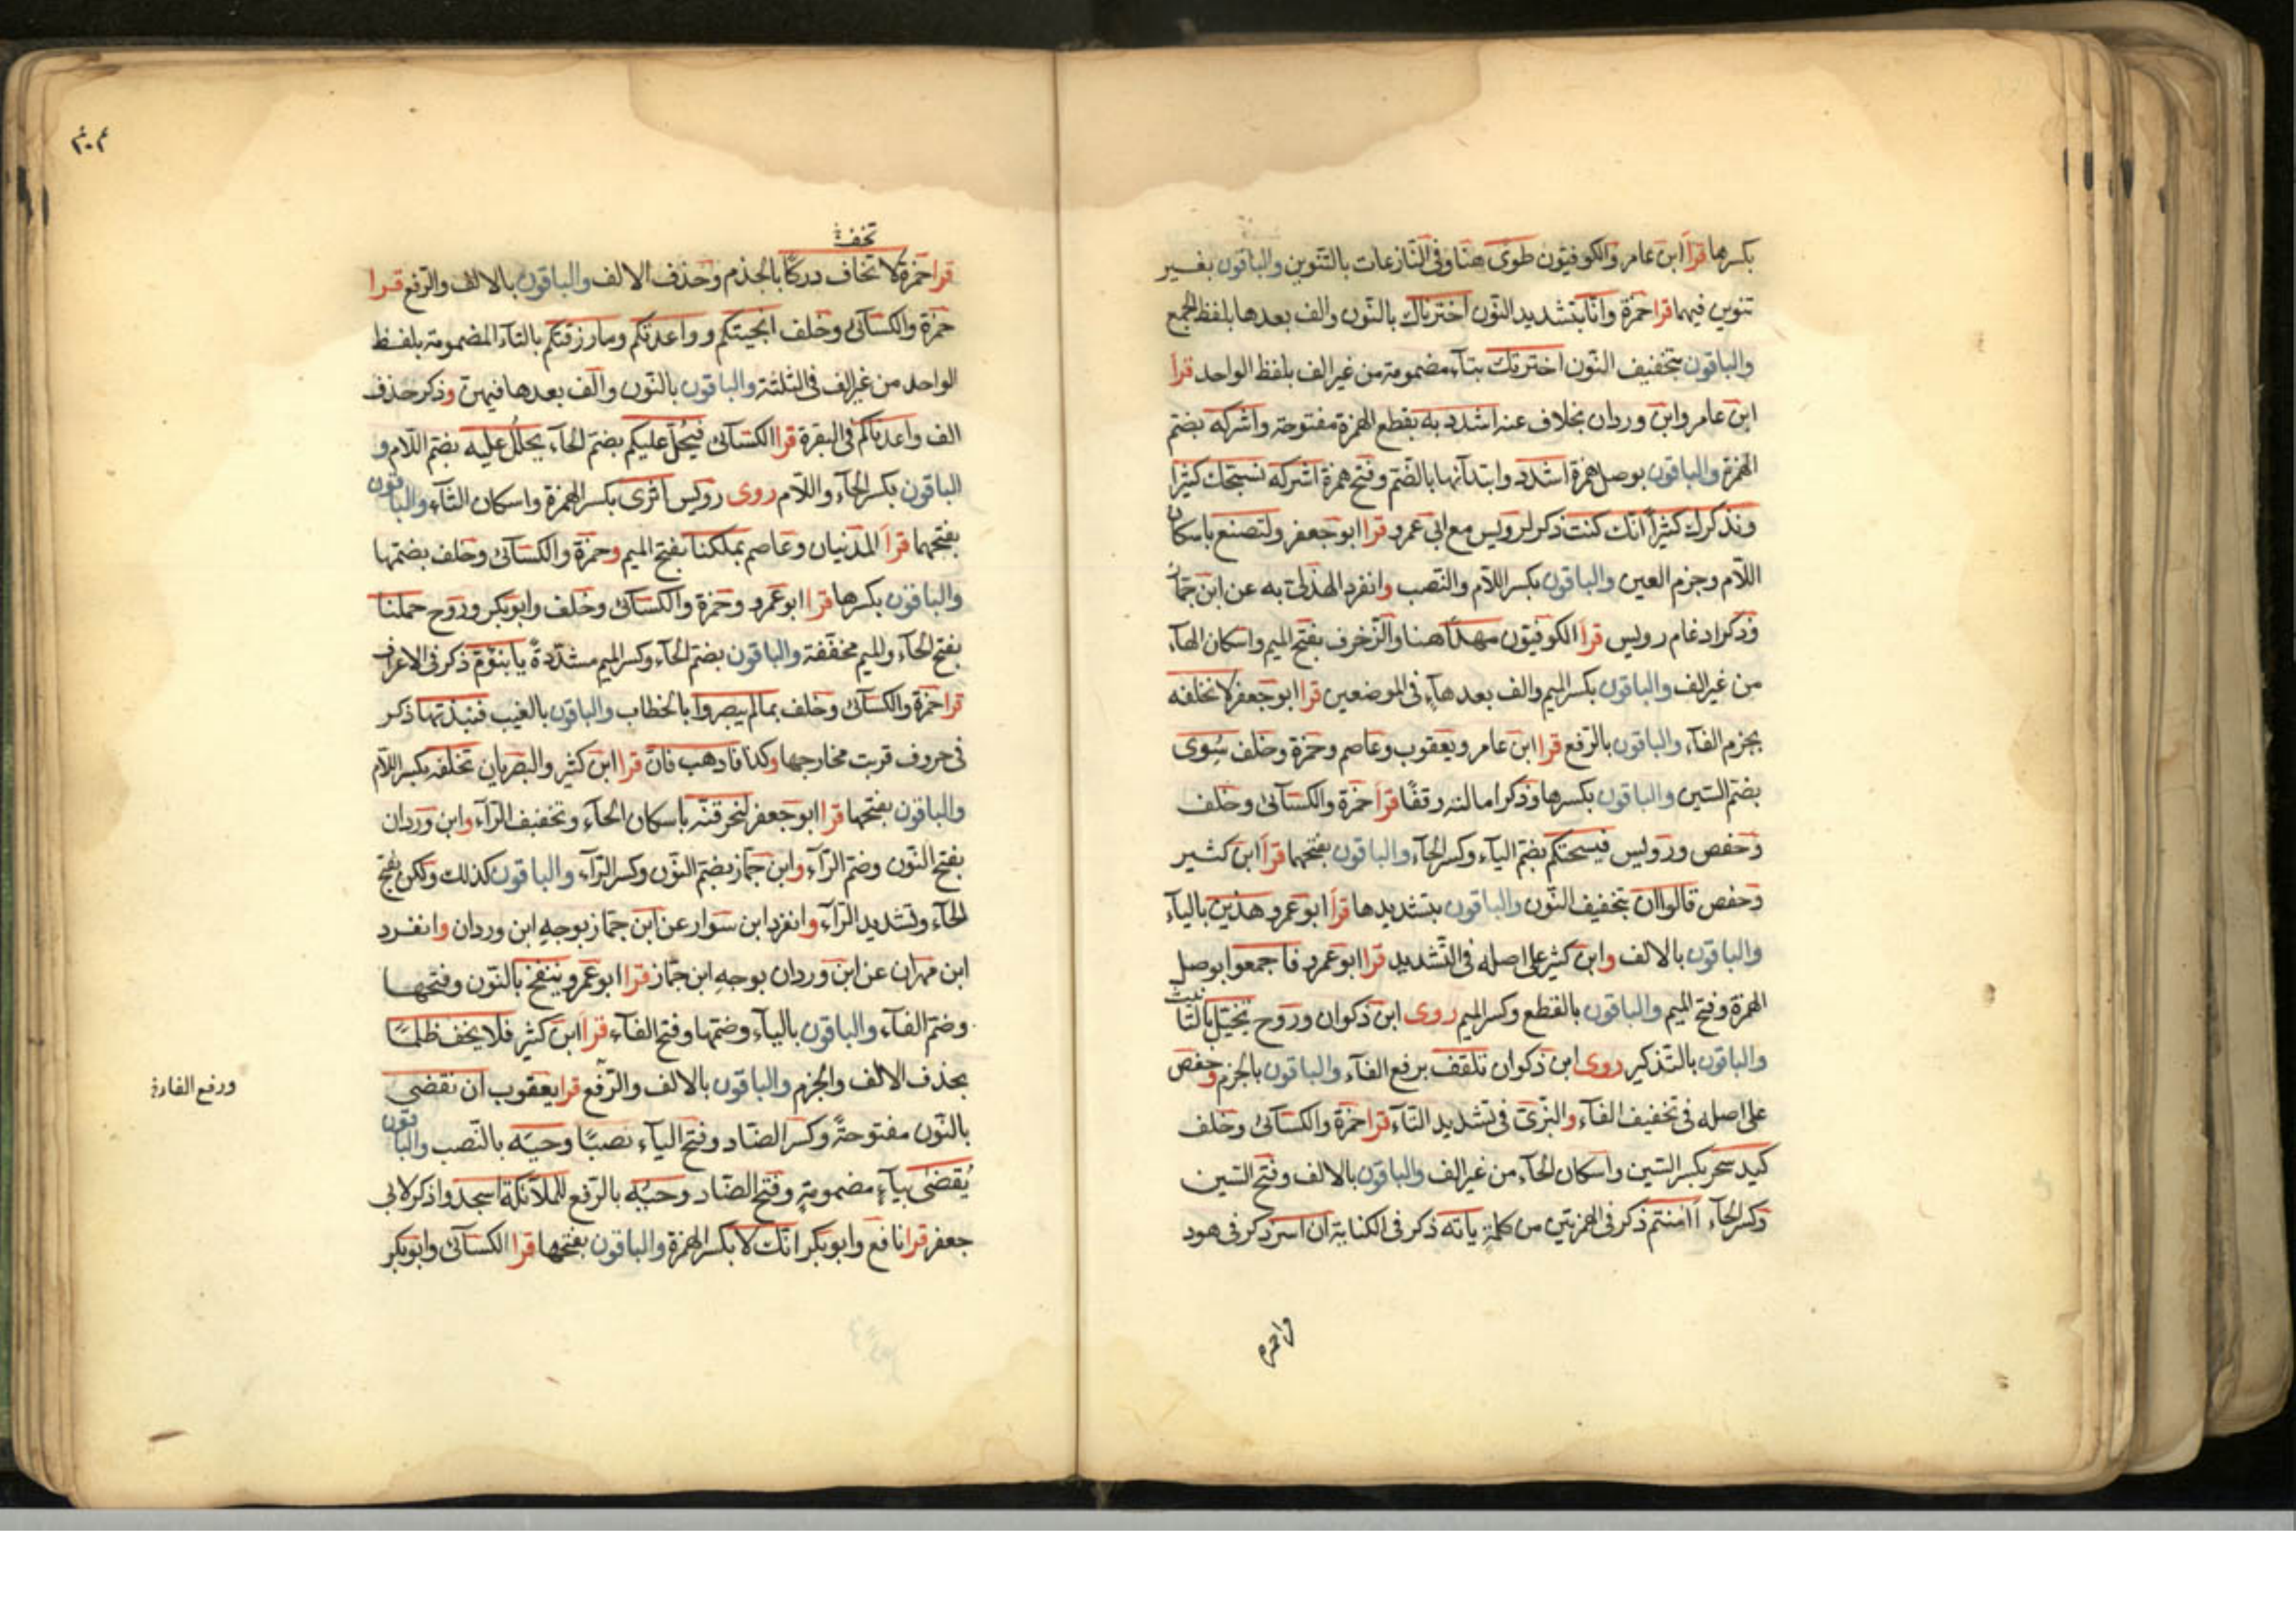 بكسرها قرأ ابن عامر والكوفيون طوى هنا وفى النازعات بالتنوين والباقون بغير
تنوين فيهما قرا حمزة وانا بتشديد النون اخترناك بالنون والف بعدها بلفظ الجمع
والباقون بتخفيف النون اخترتك بتاء مضمومة من غير الف بلفظ الواحد قرأ
ابن عامر وابن وردان بخلاف عنه اشدد به بقطع الهمزة مفتوحة واشركه بضم
الهمزة والباقون بوصل همزة اشدد وابتدآئها بالضم وفتح همزة اشركه نسبحك كثيرا
ونذكرك كثيرا انك كنت ذكر لرويس مع ابى عمرو قرا ابو جعفر ولتصنع باسكان
اللام وجزم العين والباقون بكسر اللام والنصب وانفرد الهذلى به عن ابن جماز
وذكر ادغام رويس قرأ الكوفيون مهدا هنا والزخرف بفتح الميم واسكان الهآء
من غير الف والباقون بكسر الميم والف بعد هآء فى الموضعين قرا ابو جعفر لا نخلفه
بجزم الفآء والباقون بالرفع قرا ابن عامر ويعقوب وعاصم وحمزة وخلف سوى
بضم السين والباقون بكسرها وذكر امالته وقفا قرأ حمزة والكسآئى وخلف
وحفص ورويس فيسحتكم بضم اليآء وكسر الحآء والباقون بفتحهما قرأ ابن كثير
وحفص قالوا ان بتخفيف النون والباقون بتشديدها قرأ ابو عمرو هذين باليآء
والباقون بالالف وابن كثير على اصله فى التشديد قرا ابو عمرو فاجمعوا بوصل
الهمزة وفتح الميم والباقون بالقطع وكسر الميم روى ابن ذكوان وروح تخيل بالتانيث
والباقون بالتذكير روى ابن ذكوان تلقف برفع الفآء والباقون بالجزم وحفص
على اصله فى تخفيف الفآء والبزى فى تشديد التآء قرا حمزة والكسآئى وخلف
كيد سحر بكسر السين واسكان الحآء من غير الف والباقون بالالف وفتح السين
وكسر الحآء أامنتم ذكر فى الهمزتين من كلمة ياته ذكر فى الكناية ان اسر ذكر فى هود
قرا حمزة
تخف
قرا حمزة لا تخاف دركا بالجزم وحذف الالف والباقون بالالف والرفع قرا
حمزة والكسآئى وخلف انجيتكم وواعدتكم وما رزقتكم بالتآء المضمومة بلفظ
الواحد من غير الف فى الثلثة والباقون بالنون والف بعدها فيهن وذكر حذف
الف واعدناكم فى البقرة قرا الكسآئى فيحل عليكم بضم الحآء يحلل عليه بضم اللام و
الباقون بكسر الحآء واللام روى رويس اثرى بكسر الهمزة واسكان الثآء والباقون
بفتحهما قرأ المدنيان وعاصم بملكنا بفتح الميم وحمزة والكسآئى وخلف بضمها
والباقون بكسرها قرا ابو عمرو وحمزة والكسآئى وخلف وابو بكر وروح حملنا
بفتح الحآء والميم مخففة والباقون بضم الحآء وكسر الميم مشددة يا بنؤم ذكر فى الاعراف
قرا حمزة والكسآئى وخلف بما لم يبصروا بالخطاب والباقون بالغيب فنبذتها ذكر
فى حروف قربت مخارجها وكذا فاذهب فان قرا ابن كثير والبصريان تخلفه بكسر اللام
والباقون بفتحها قرا ابو جعفر لنحرقنه باسكان الحآء وتخفيف الرآء وابن وردان
بفتح النون وضم الرآء وابن جماز بضم النون وكسر الرآء والباقون كذلك ولكن بفتح
الحآء وتشديد الرآء وانفرد ابن سوار عن ابن جماز بوجه ابن وردان وانفرد
ابن مهران عن ابن وردان بوجه ابن جماز قرا ابو عمرو ننفخ بالنون وفتحها
وضم الفآء والباقون باليآء وضمها وفتح الفآء قرأ ابن كثير فلا يخف ظلما
بحذف الالف والجزم والباقون بالالف والرفع قرا يعقوب ان نقضى
بالنون مفتوحة وكسر الضاد وفتح اليآء نصبا وحيه بالنصب والباقون
يقضى بيآء مضمومة وفتح الضاد وحيه بالرفع للملآئكة اسجدوا ذكر لابى
جعفر قرا نافع وابو بكر انك لا بكسر الهمزة والباقون بفتحها قرا الكسآئى وابو بكر
ورفع الفا